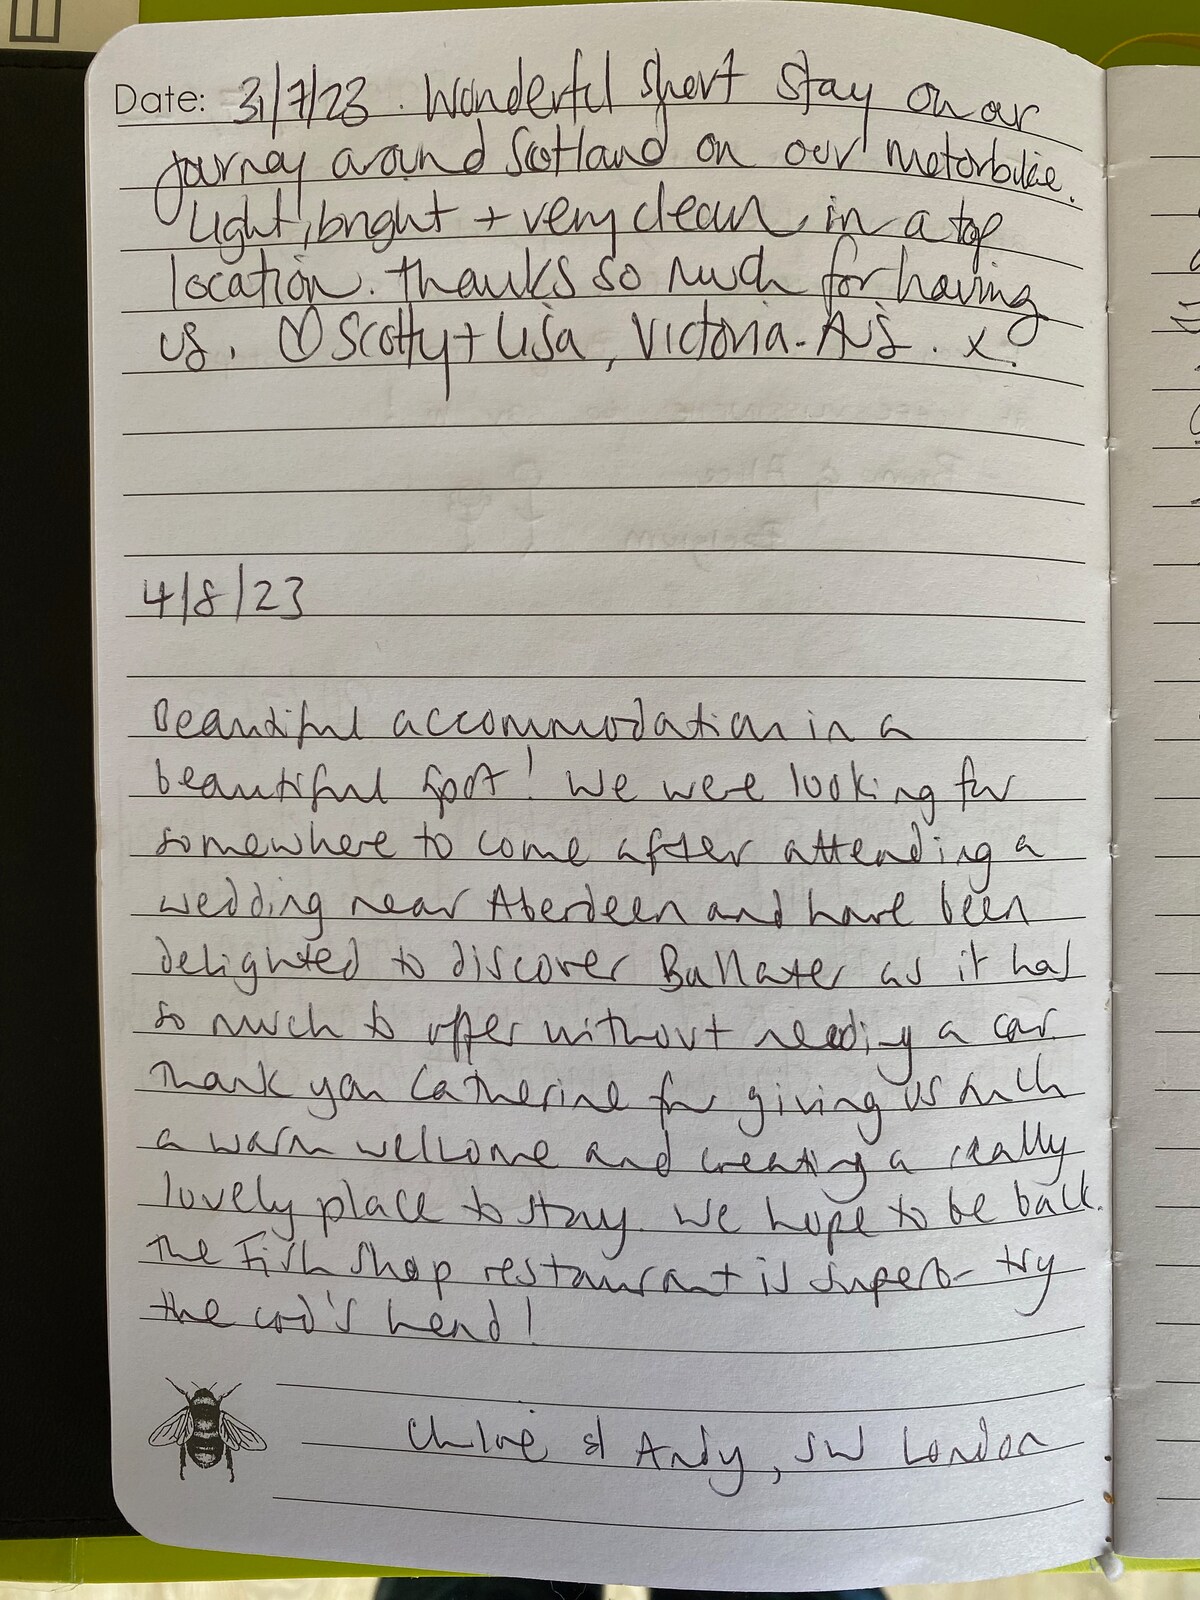 Date: 31/7/23. Wonderful short stay on our
journey around Scotland on our motorbike.
Light, bright + very clean, in a top
location. Thanks so much for having
us. Scotty + Lisa, Victoria - Aus. x.
4/8/23
Beautiful accommodation in a
beautiful spot! We were looking for
somewhere to come after attending a
wedding near Aberdeen and have been
delighted to discover Ballater as it has
so much to offer without needing a car.
Thank you Catherine for giving us such
a warm wellcome and creating a really
lovely place to stay. We hope to be back.
The Fish Shop restaurant is superb - try
the cod's head!
Chloë & Andy, SW London